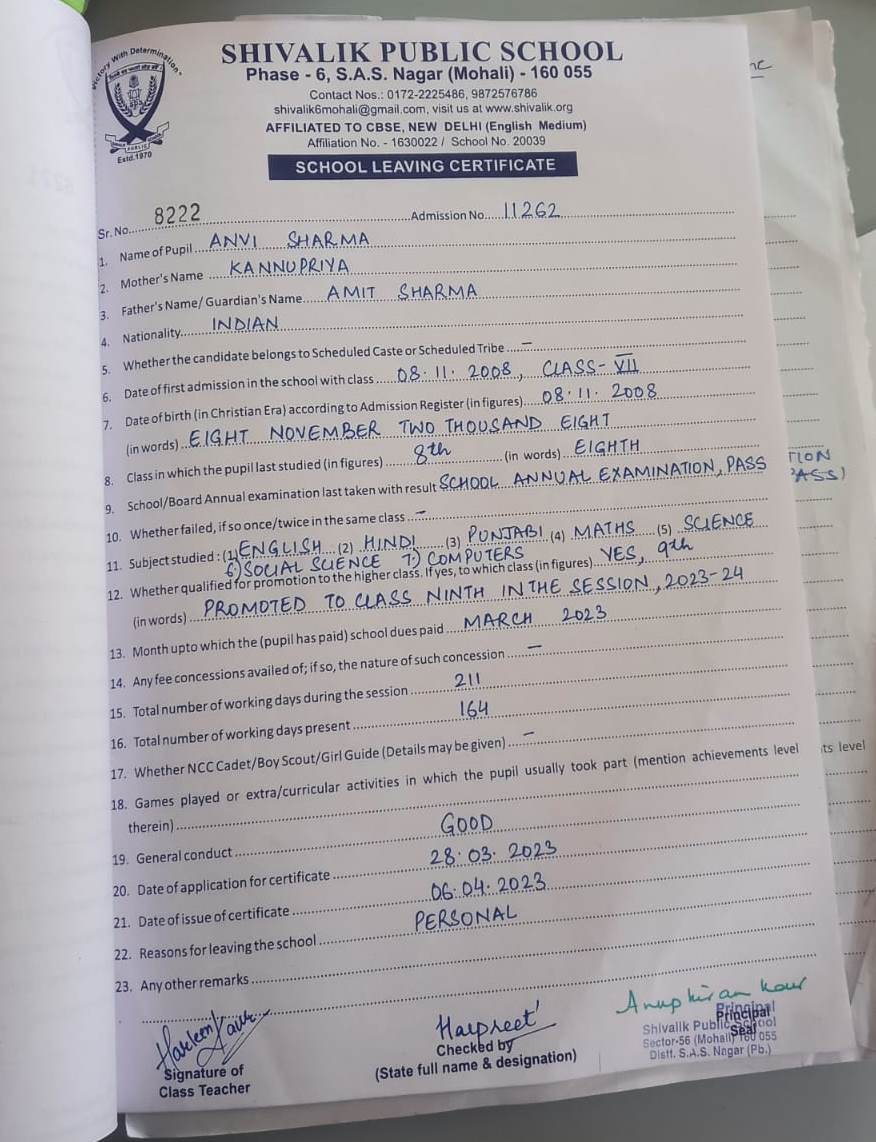 Victory With Determination
PUBLIC
Estd.1970
SHIVALIK PUBLIC SCHOOL
Phase - 6, S.A.S. Nagar (Mohali) - 160 055
Contact Nos.: 0172-2225486, 9872576786
shivalik6mohali@gmail.com, visit us at www.shivalik.org
AFFILIATED TO CBSE, NEW DELHI (English Medium)
Affiliation No. - 1630022 / School No. 20039
SCHOOL LEAVING CERTIFICATE
Sr. No. 8222 Admission No. 11262
1. Name of Pupil ANVI SHARMA
2. Mother's Name KANNUPRIYA
3. Father's Name/ Guardian's Name AMIT SHARMA
4. Nationality INDIAN
5. Whether the candidate belongs to Scheduled Caste or Scheduled Tribe –
6. Date of first admission in the school with class 08.11.2008, CLASS- VII
7. Date of birth (in Christian Era) according to Admission Register (in figures) 08.11.2008
(in words) EIGHT NOVEMBER TWO THOUSAND EIGHT
8. Class in which the pupil last studied (in figures) 8th (in words) EIGHTH
9. School/Board Annual examination last taken with result SCHOOL ANNUAL EXAMINATION, PASS
10. Whether failed, if so once/twice in the same class –
11. Subject studied : (1) ENGLISH (2) HINDI (3) PUNJABI (4) MATHS (5) SCIENCE
6) SOCIAL SCIENCE 7) COMPUTERS
12. Whether qualified for promotion to the higher class. If yes, to which class (in figures) YES, 9th
(in words) PROMOTED TO CLASS NINTH IN THE SESSION, 2023-24
13. Month upto which the (pupil has paid) school dues paid MARCH 2023
14. Any fee concessions availed of; if so, the nature of such concession –
15. Total number of working days during the session 211
16. Total number of working days present 164
17. Whether NCC Cadet/Boy Scout/Girl Guide (Details may be given) –
18. Games played or extra/curricular activities in which the pupil usually took part (mention achievements level
therein)
19. General conduct GOOD
20. Date of application for certificate 28.03.2023
21. Date of issue of certificate 06.04.2023
22. Reasons for leaving the school PERSONAL
23. Any other remarks
Harpreet
Anupkiran Kour
Signature of
Class Teacher
Checked by
(State full name & designation)
Principal
Principal
Seal
Shivalik Public School
Sector-56 (Mohali) 160 055
Distt. S.A.S. Nagar (Pb.)
TION
PASS)
ts level